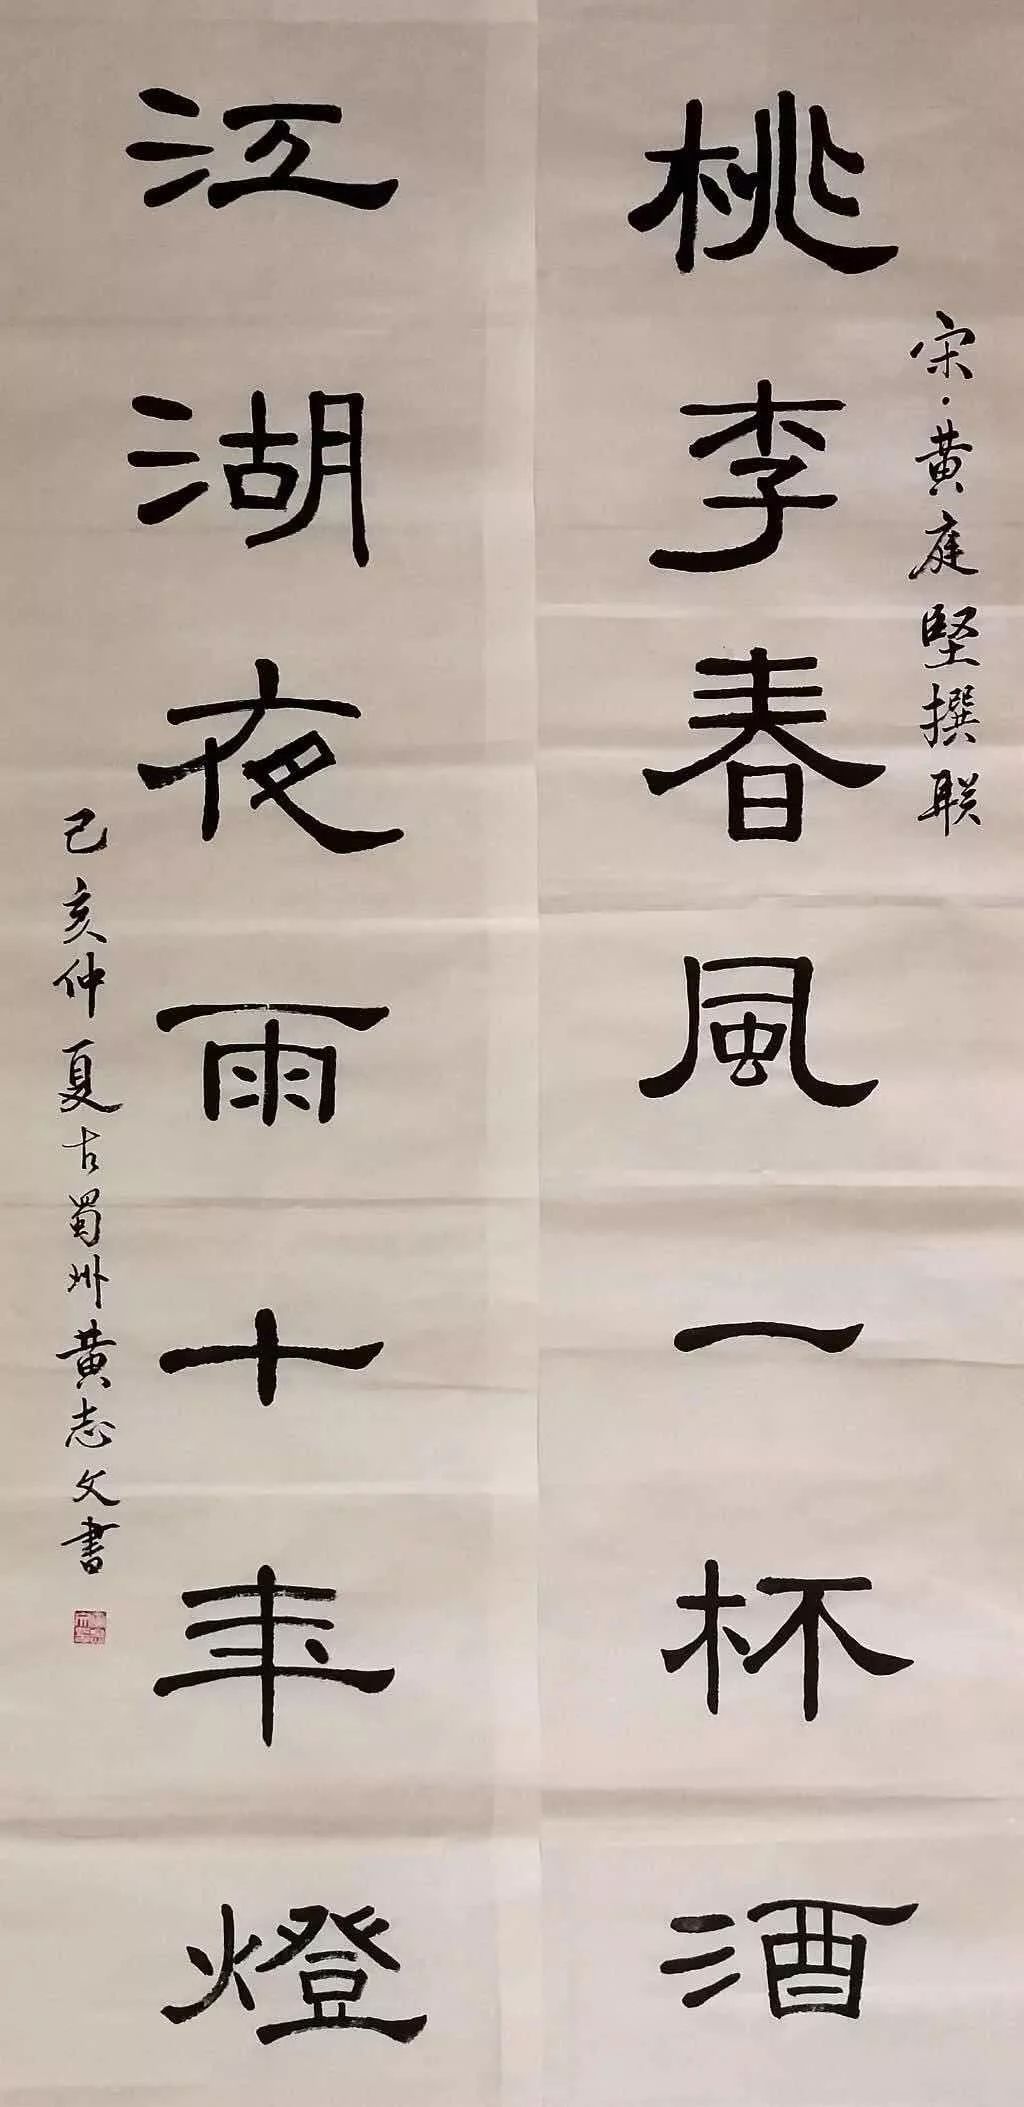 桃李春風一杯酒
宋·黄庭堅撰联
江湖夜雨十年燈
己亥仲夏古蜀州黄志文書